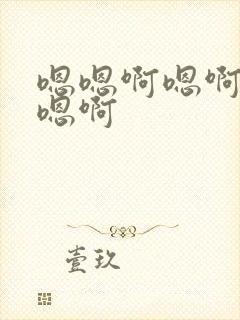 嗯嗯啊嗯啊
嗯啊
壹玖